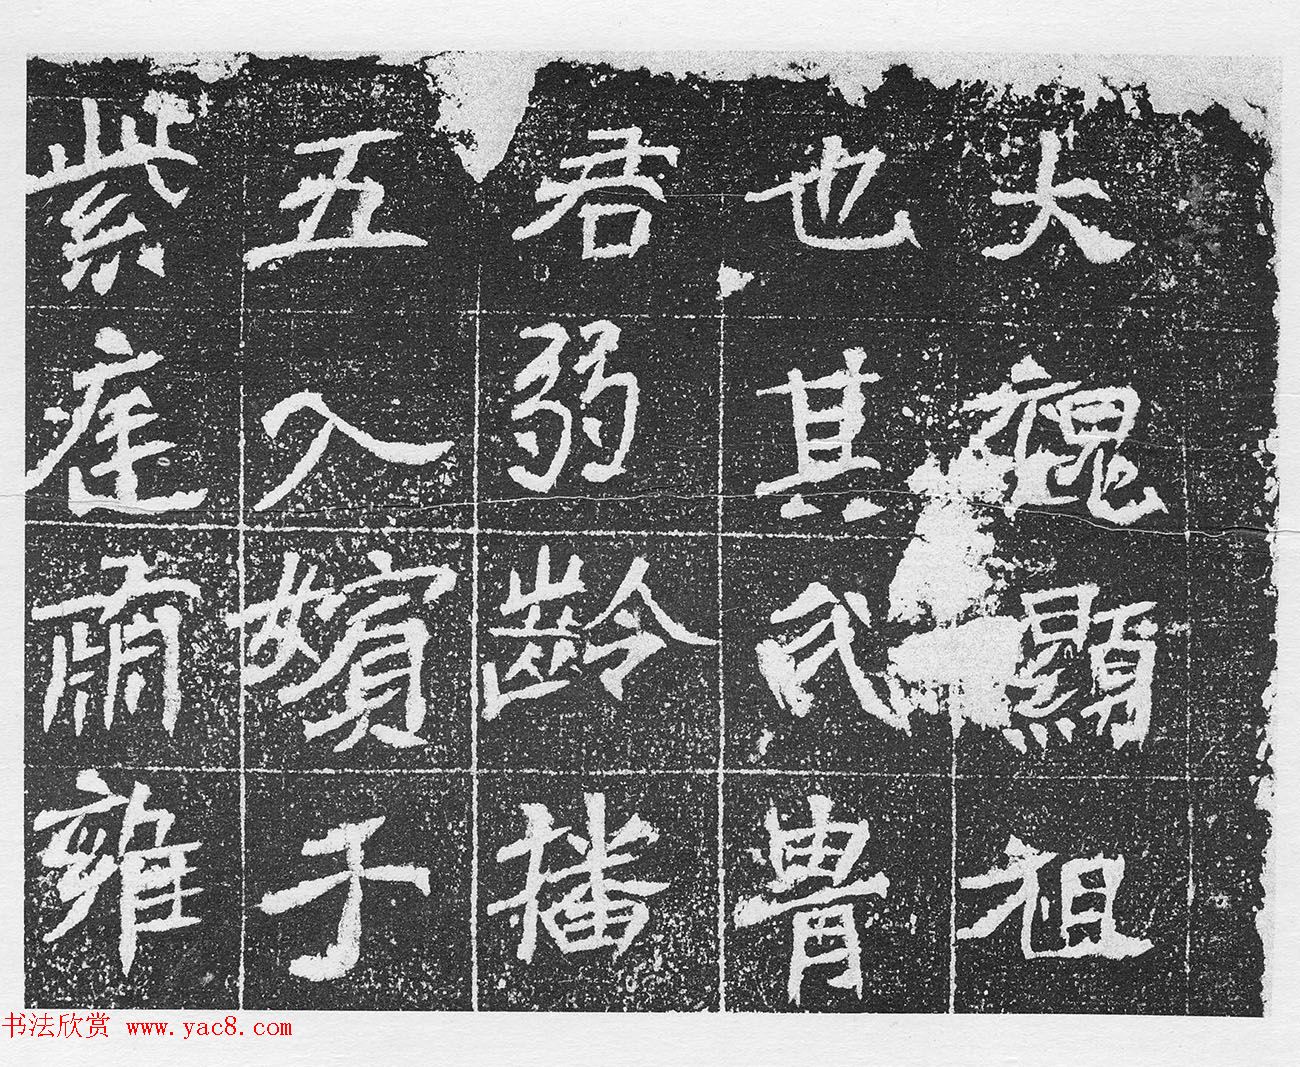 大魏顯祖
也其氏胄
君弱齡播
五入嬪于
紫庭肅雍
书法欣赏 www.yac8.com